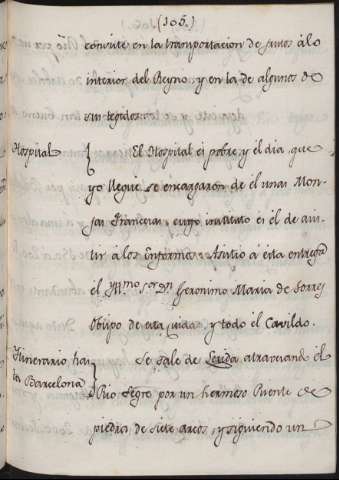 (105.)
consiste en la transportacion de frutos âlo
interior del Reyno, y en la de algunos de
sus tegidos.
Hospital
El Hospital es pobre, y el dia, que
yo llegué se encargarón de él unas Mon-
jas Francesas, cuyo instituto es él de asis-
tir á los Enfermos: Asistio á esta entrega
el Yllmo. Sor. Dn. Geronimo Maria de Torres
Obispo de esta Ciudad, y todo el Cavildo.
Itinerario has-
ta Barcelona
Se sale de Lerida atravesando él
Rio Segre por un hermoso Puente de
piedra de siete arcos, y siguiendo un